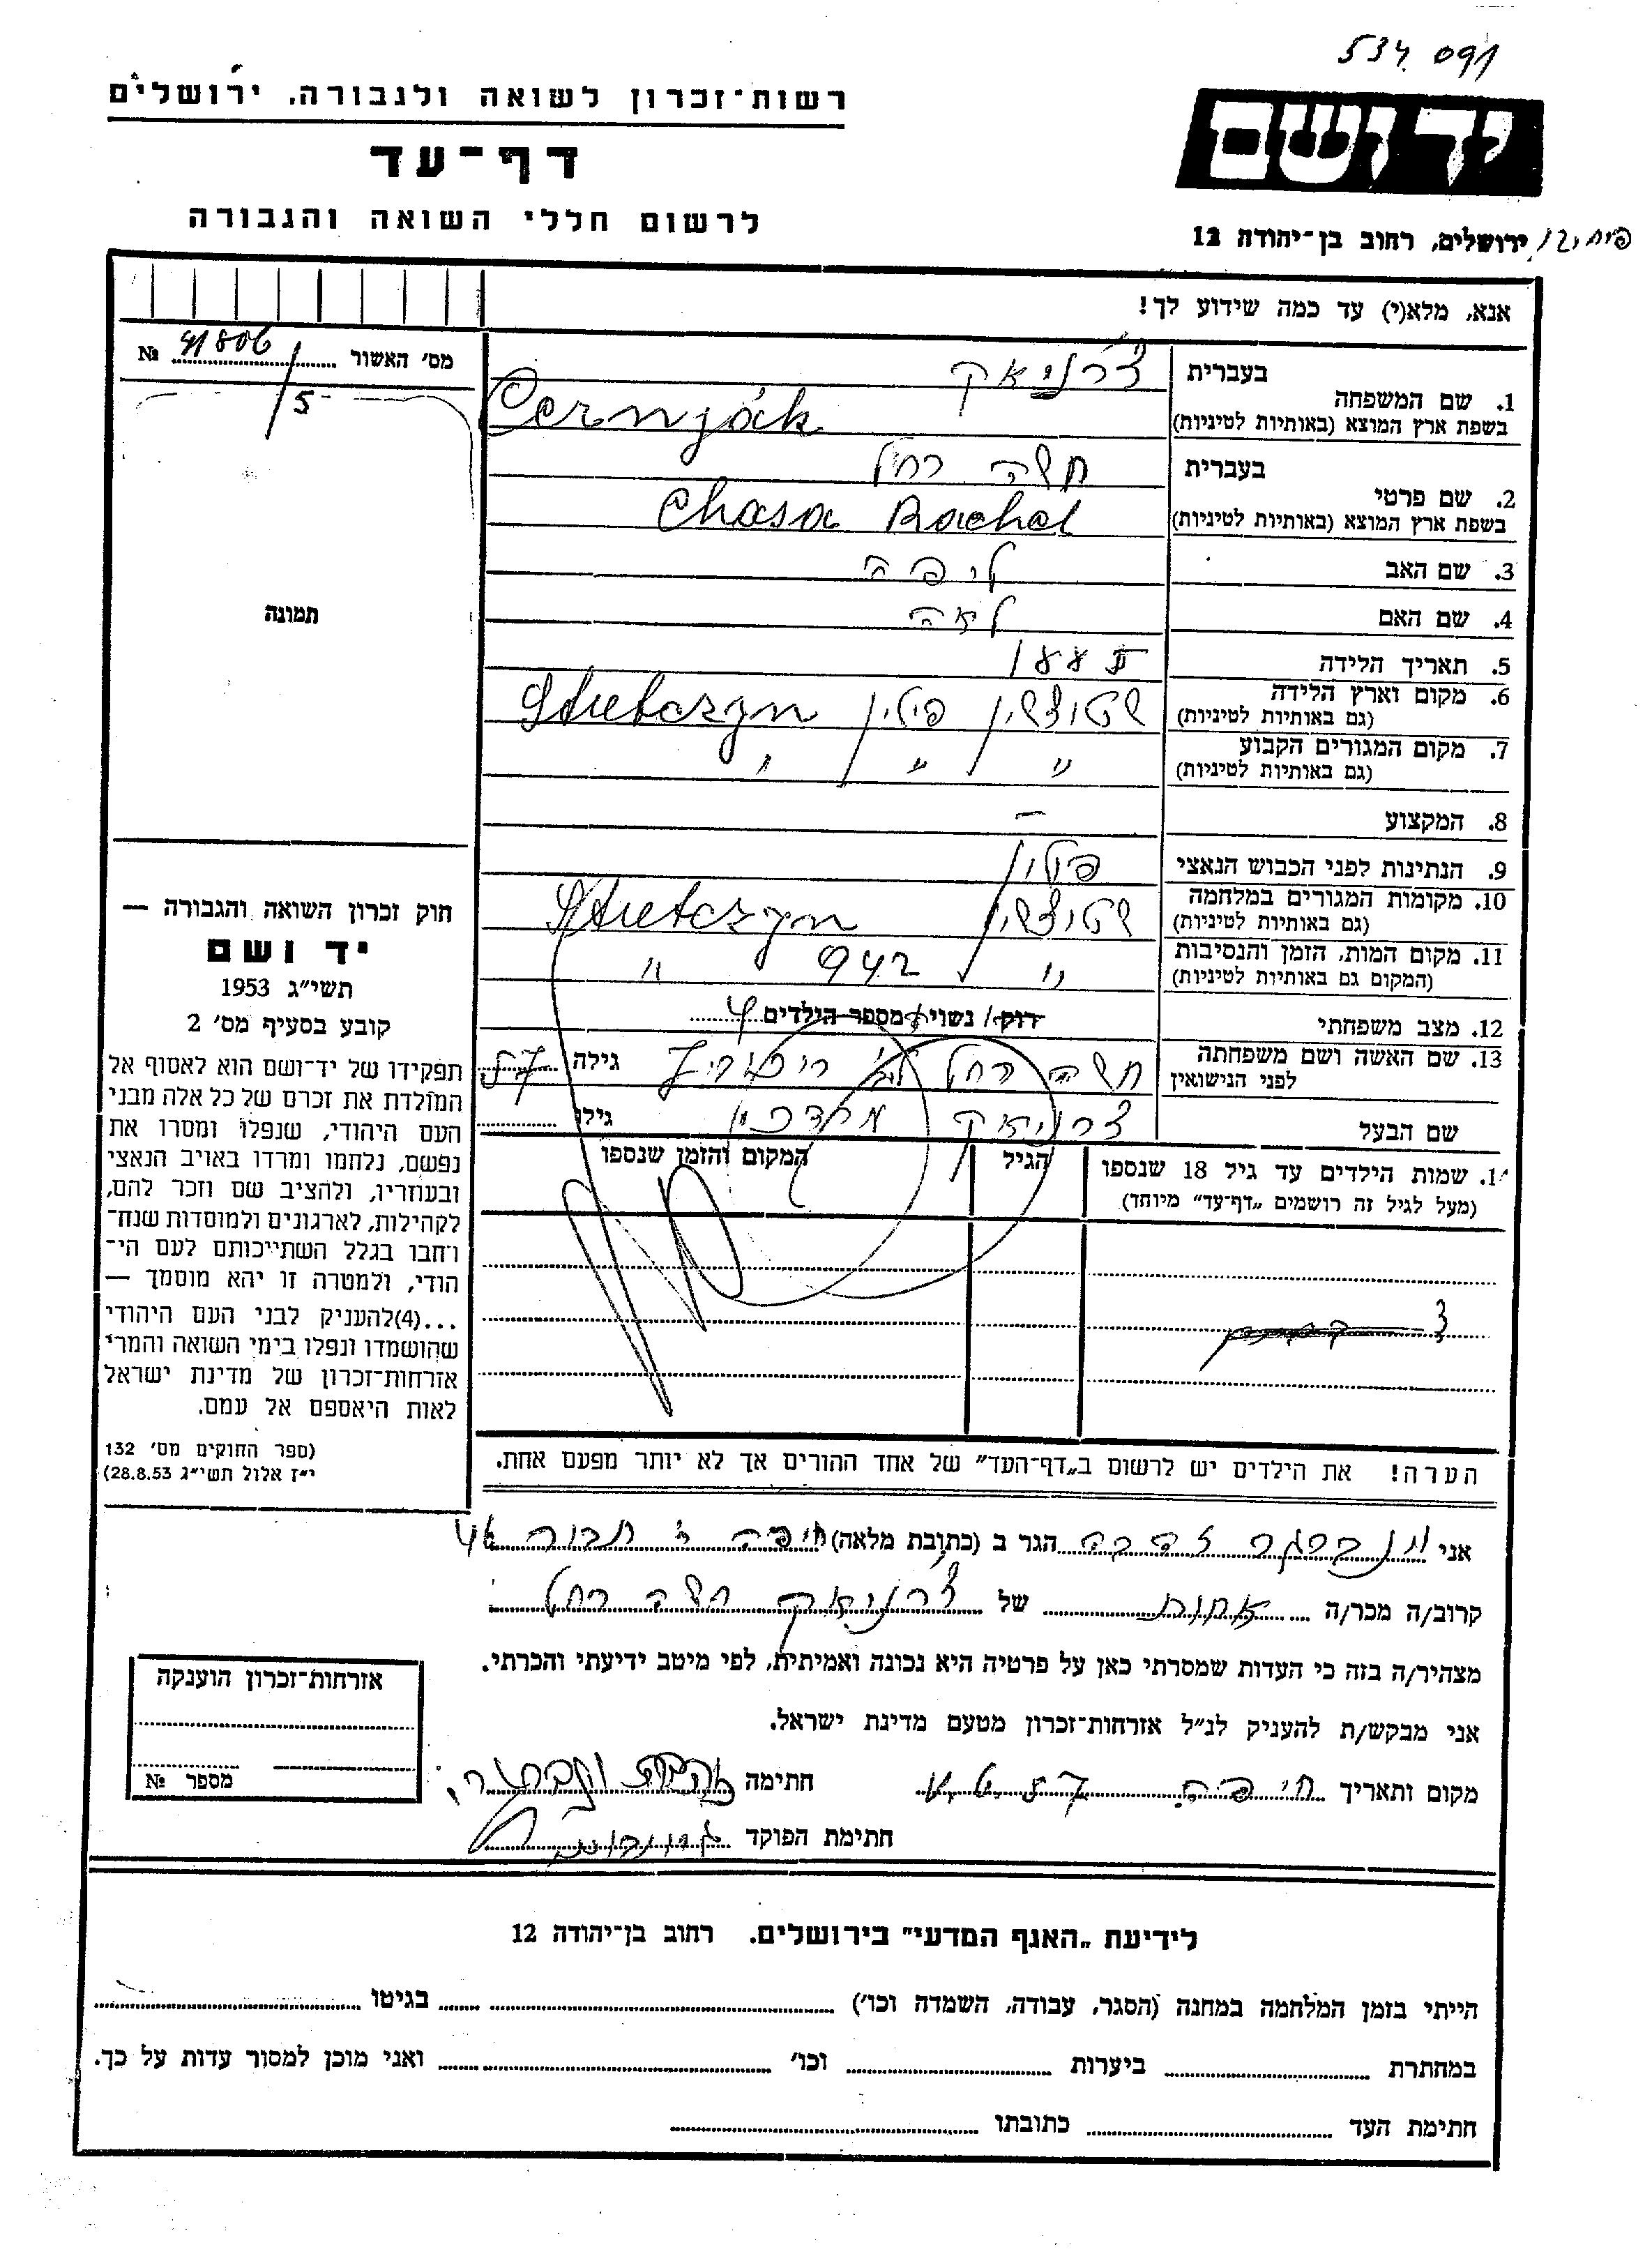 534.091
רשות־זכרון לשואה ולגבורה, ירושלים
דף־עד
לרשום חללי השואה והגבורה
יד ושם
ירושלים, רחוב בן־יהודה 12
אנא, מלא(י) עד כמה שידוע לך!
מס׳ האשור № 41806
/5
תמונה
בעברית צ׳רניאק
1. שם המשפחה
בשפת ארץ המוצא (באותיות לטיניות) Cernyák
בעברית חשה רחל
2. שם פרטי
בשפת ארץ המוצא (באותיות לטיניות) Chasa Rachel
3. שם האב ליפה
4. שם האם לאה
5. תאריך הלידה 1885
6. מקום וארץ הלידה שטוצשין פולין
(גם באותיות לטיניות)
7. מקום המגורים הקבוע " " "
(גם באותיות לטיניות)
8. המקצוע –
9. הנתינות לפני הכבוש הנאצי פולין
10. מקומות המגורים במלחמה שטוצשין
(גם באותיות לטיניות)
11. מקום המות, הזמן והנסיבות " 942 "
(המקום גם באותיות לטיניות)
12. מצב משפחתי רוק/ נשוי/ מספר הילדים 4
13. שם האשה ושם משפחתה חשה רחל גילה 57
לפני הנישואין
שם הבעל צרניאק מרדכי גילו
14. שמות הילדים עד גיל 18 שנספו הגיל המקום והזמן שנספו
(מעל לגיל זה רושמים „דף־עד״ מיוחד)
הערה! את הילדים יש לרשום ב„דף־העד״ של אחד ההורים אך לא יותר מפעם אחת.
חוק זכרון השואה והגבורה —
יד ושם
תשי״ג 1953
קובע בסעיף מס׳ 2
תפקידו של יד־ושם הוא לאסוף אל
המולדת את זכרם של כל אלה מבני
העם היהודי, שנפלו ומסרו את
נפשם, נלחמו ומרדו באויב הנאצי
ובעוזריו, ולהציב שם וזכר להם,
לקהילות, לארגונים ולמוסדות שנח־
רבו בגלל השתייכותם לעם הי־
הודי, ולמטרה זו יהא מוסמך —
...(4)להעניק לבני העם היהודי
שהושמדו ונפלו בימי השואה והמרי
אזרחות־זכרון של מדינת ישראל
לאות היאספם אל עמם.
(ספר החוקים מס׳ 132
י״ז אלול תשי״ג 28.8.53)
אני וינברגר זהבה הגר ב (כתובת מלאה) חיפה
קרוב/ה מכר/ה אחות של צ׳רניאק חשה רחל
מצהיר/ה בזה כי העדות שמסרתי כאן על פרטיה היא נכונה ואמיתית, לפי מיטב ידיעתי והכרתי.
אני מבקש/ת להעניק לנ״ל אזרחות־זכרון מטעם מדינת ישראל.
מקום ותאריך חיפה חתימה
חתימת הפוקד
אזרחות־זכרון הוענקה
מספר №
לידיעת „האגף המדעי״ בירושלים. רחוב בן־יהודה 12
הייתי בזמן המלחמה במחנה (הסגר, עבודה, השמדה וכו׳) בגיטו
במחתרת ביערות וכו׳ ואני מוכן למסור עדות על כך.
חתימת העד כתובתו